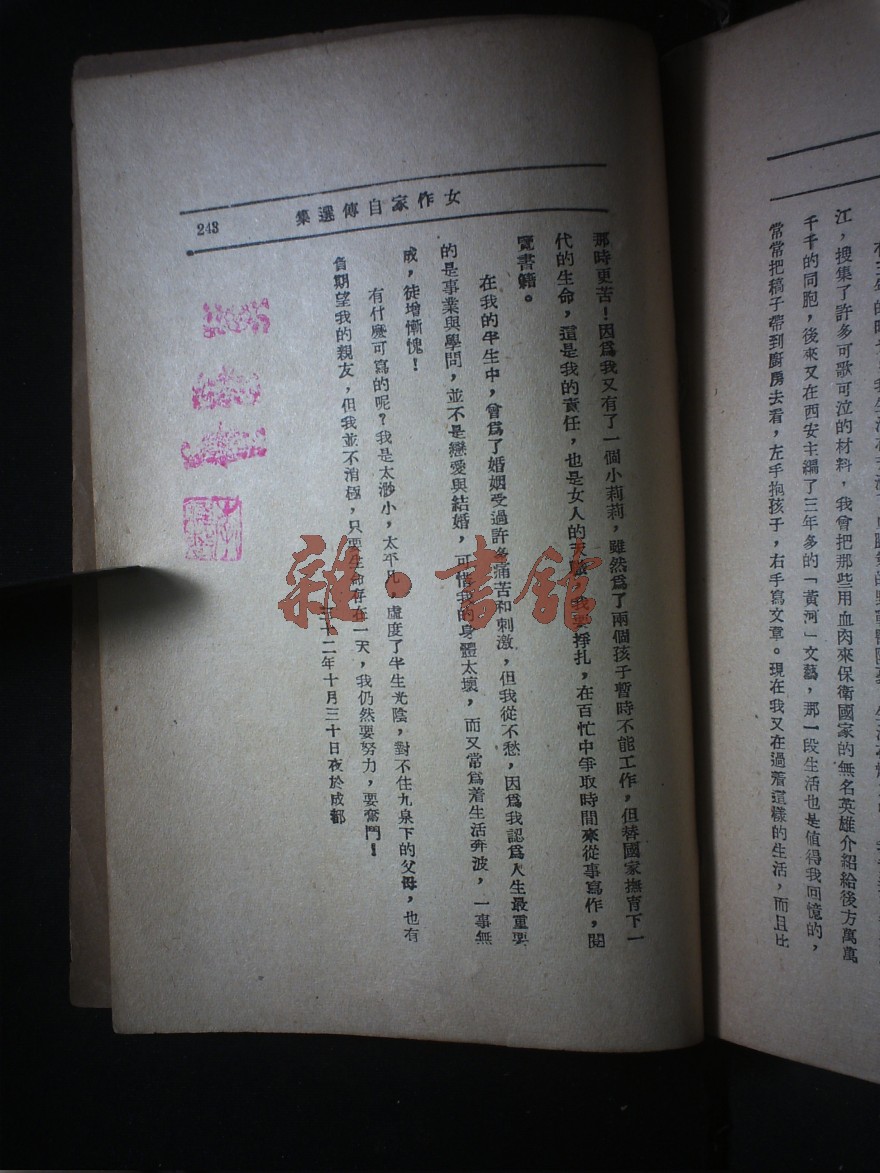 江，搜集了許多可歌可泣的材料，我曾把那些用血肉來保衛國家的無名英雄介紹給後方萬萬
千千的同胞，後來又在西安主編了三年多的「黃河」文藝，那一段生活也是値得我回憶的，
常常把稿子帶到廚房去看，左手抱孩子，右手寫文章。現在我又在過着這樣的生活，而且比
女作家自傳選集
243
那時更苦！因爲我又有了一個小莉莉，雖然爲了兩個孩子暫時不能工作，但替國家撫育下一
代的生命，這是我的責任，也是女人的天職，我要掙扎，在百忙中爭取時間來從事寫作，閱
覽書籍。
在我的半生中，曾爲了婚姻受過許多痛苦和刺激，但我從不愁，因爲我認爲人生最重要
的是事業與學問，並不是戀愛與結婚，可惜我的身體太壞，而又常爲着生活奔波，一事無
成，徒增慚愧！
有什麼可寫的呢？我是太渺小，太平凡，虛度了半生光陰，對不住九泉下的父母，也有
負期望我的親友，但我並不消極，只要生命存在一天，我仍然要努力，要奮鬥！
三十二年十月三十日夜於成都
雜·書館